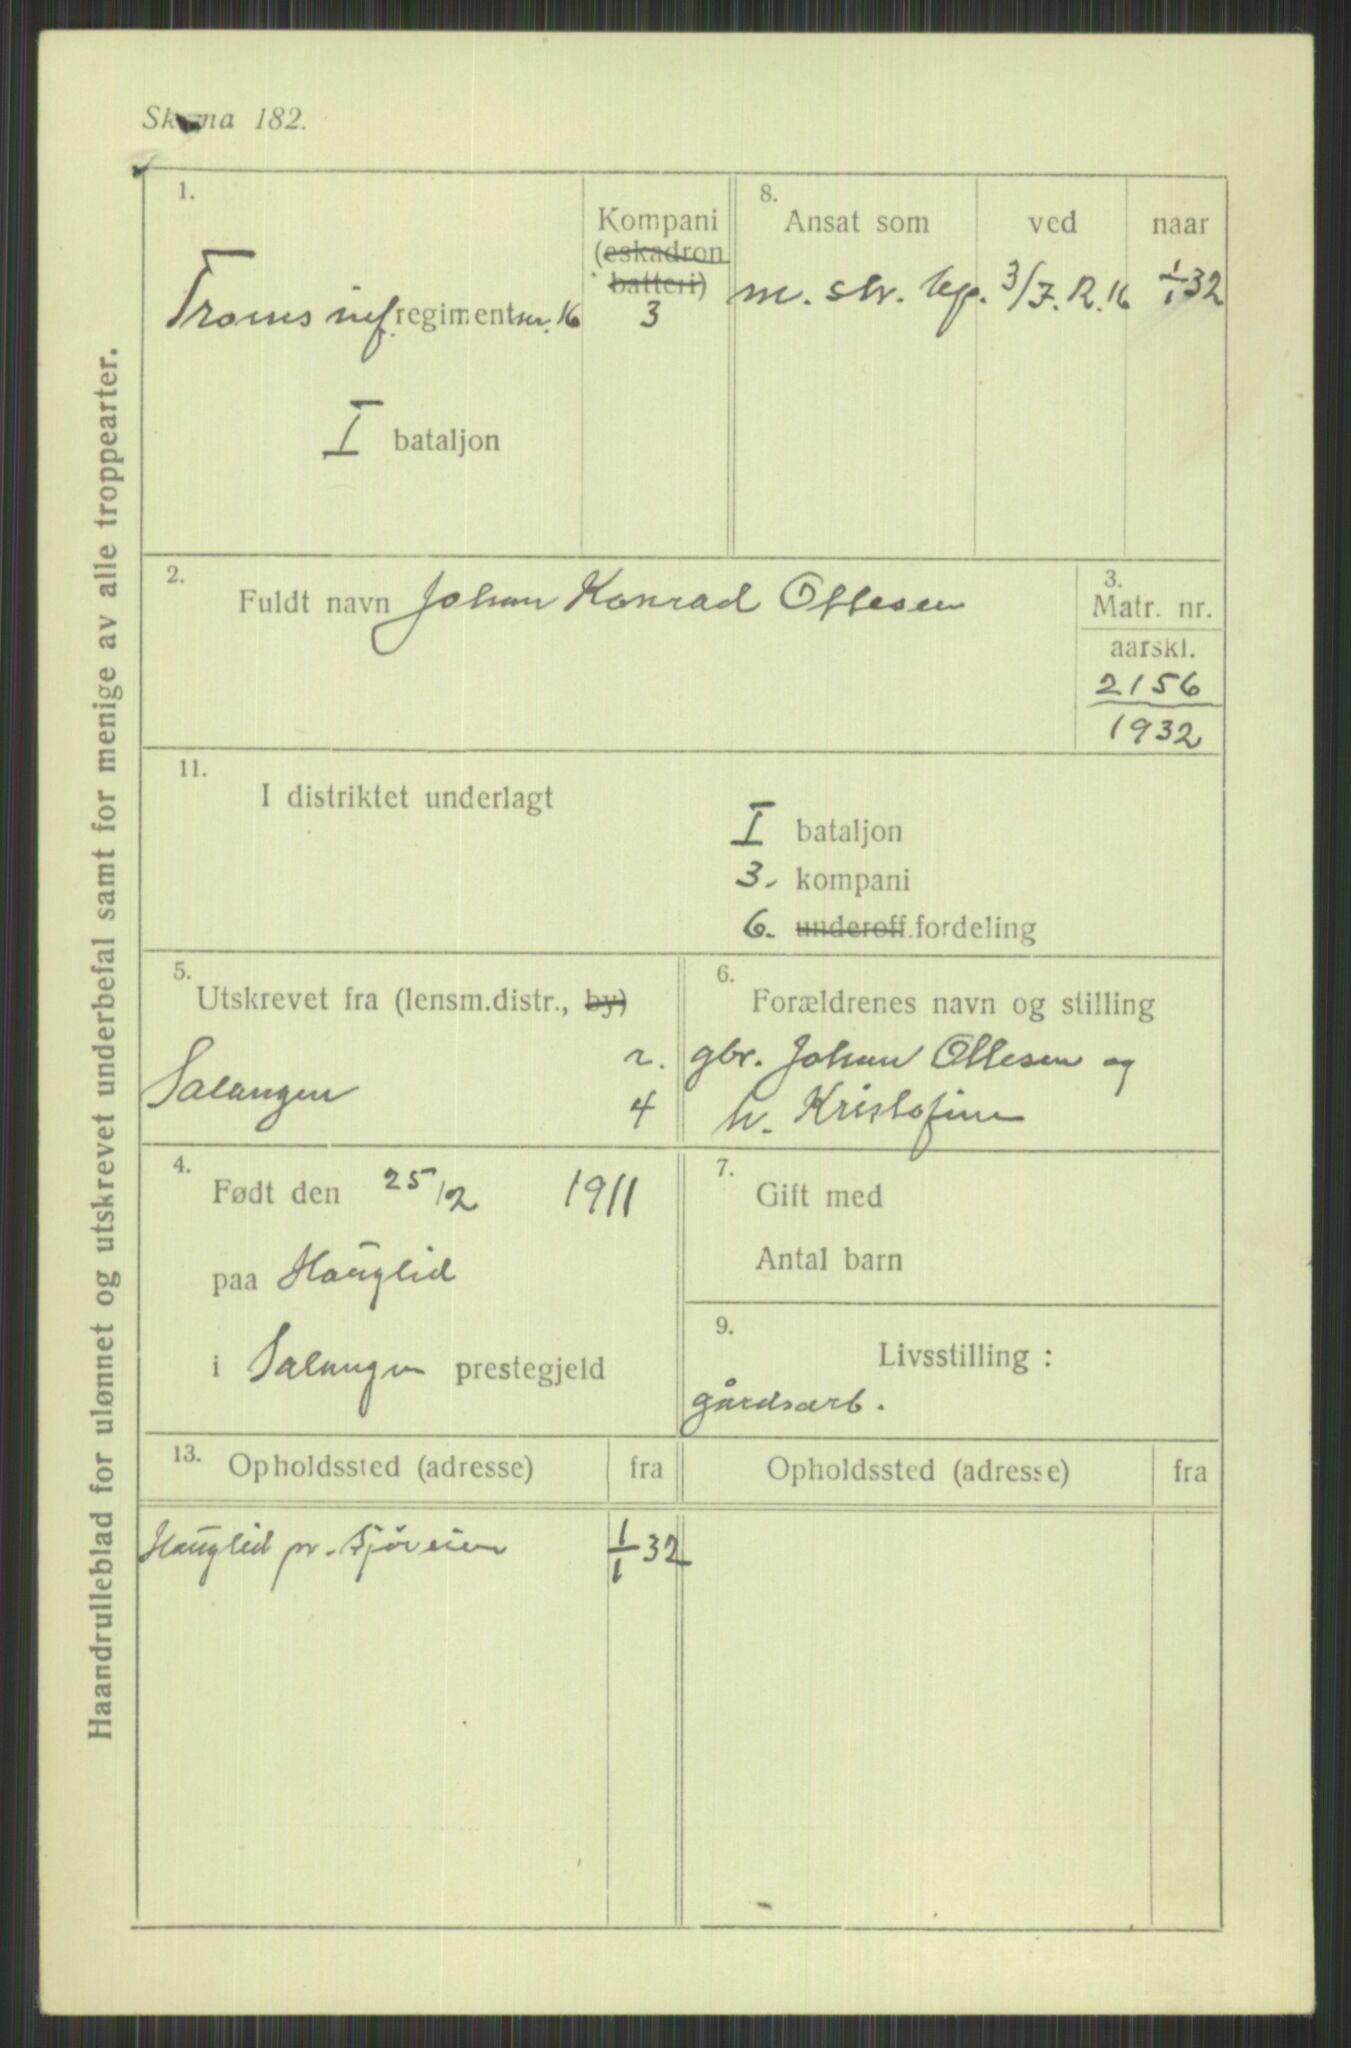 Skema 182.
Haandrulleblad for ulønnet og utskrevet underbefal samt for menige av alle troppearter.
1.
Kompani
(eskadron
batteri)
Troms inf. regiment nr. 16
3
I bataljon
8.
Ansat som ved naar
m. str. kp. 3/I.R.16 1/1 32
2.
Fuldt navn Johan Konrad Ollesen
3.
Matr. nr.
aarskl.
2156
1932
11.
I distriktet underlagt
I bataljon
3. kompani
6. underoff.fordeling
5.
Utskrevet fra (lensm.distr., by)
r.
Salangen 4
6.
Forældrenes navn og stilling
gbr. Johan Ollesen og
h. Kristofine
4.
Født den 25/2 1911
paa Hauglid
i Salangen prestegjeld
7.
Gift med
Antal barn
9.
Livsstilling :
gårdsarb.
13.
Opholdssted (adresse) fra
Opholdssted (adresse) fra
Hauglid pr. Sjøveien 1/1 32